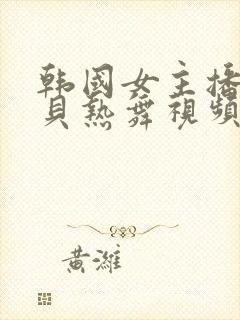 韩国女主播
贝热舞视频
黄潍